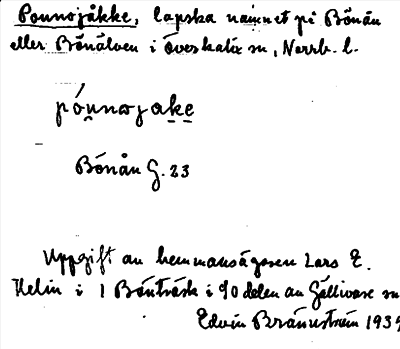 Pounojåkke, lapska namnet på Bönån
eller Bönälven i Överkalix sn, Norrb. l.
póunojake
Bönån G. 23
Uppgift av hemmansägaren Lars E.
Helin i 1 Bönträsk i 90 delen av Gällivare sn
Edvin Brännström 1935